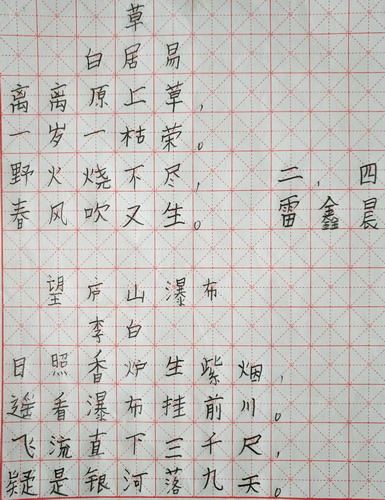 草
白居易
离离原上草，
一岁一枯荣。
野火烧不尽，
春风吹又生。
二，四
雷鑫晨
望庐山瀑布
李白
日照香炉生紫烟，
遥看瀑布挂前川。
飞流直下三千尺，
疑是银河落九天。